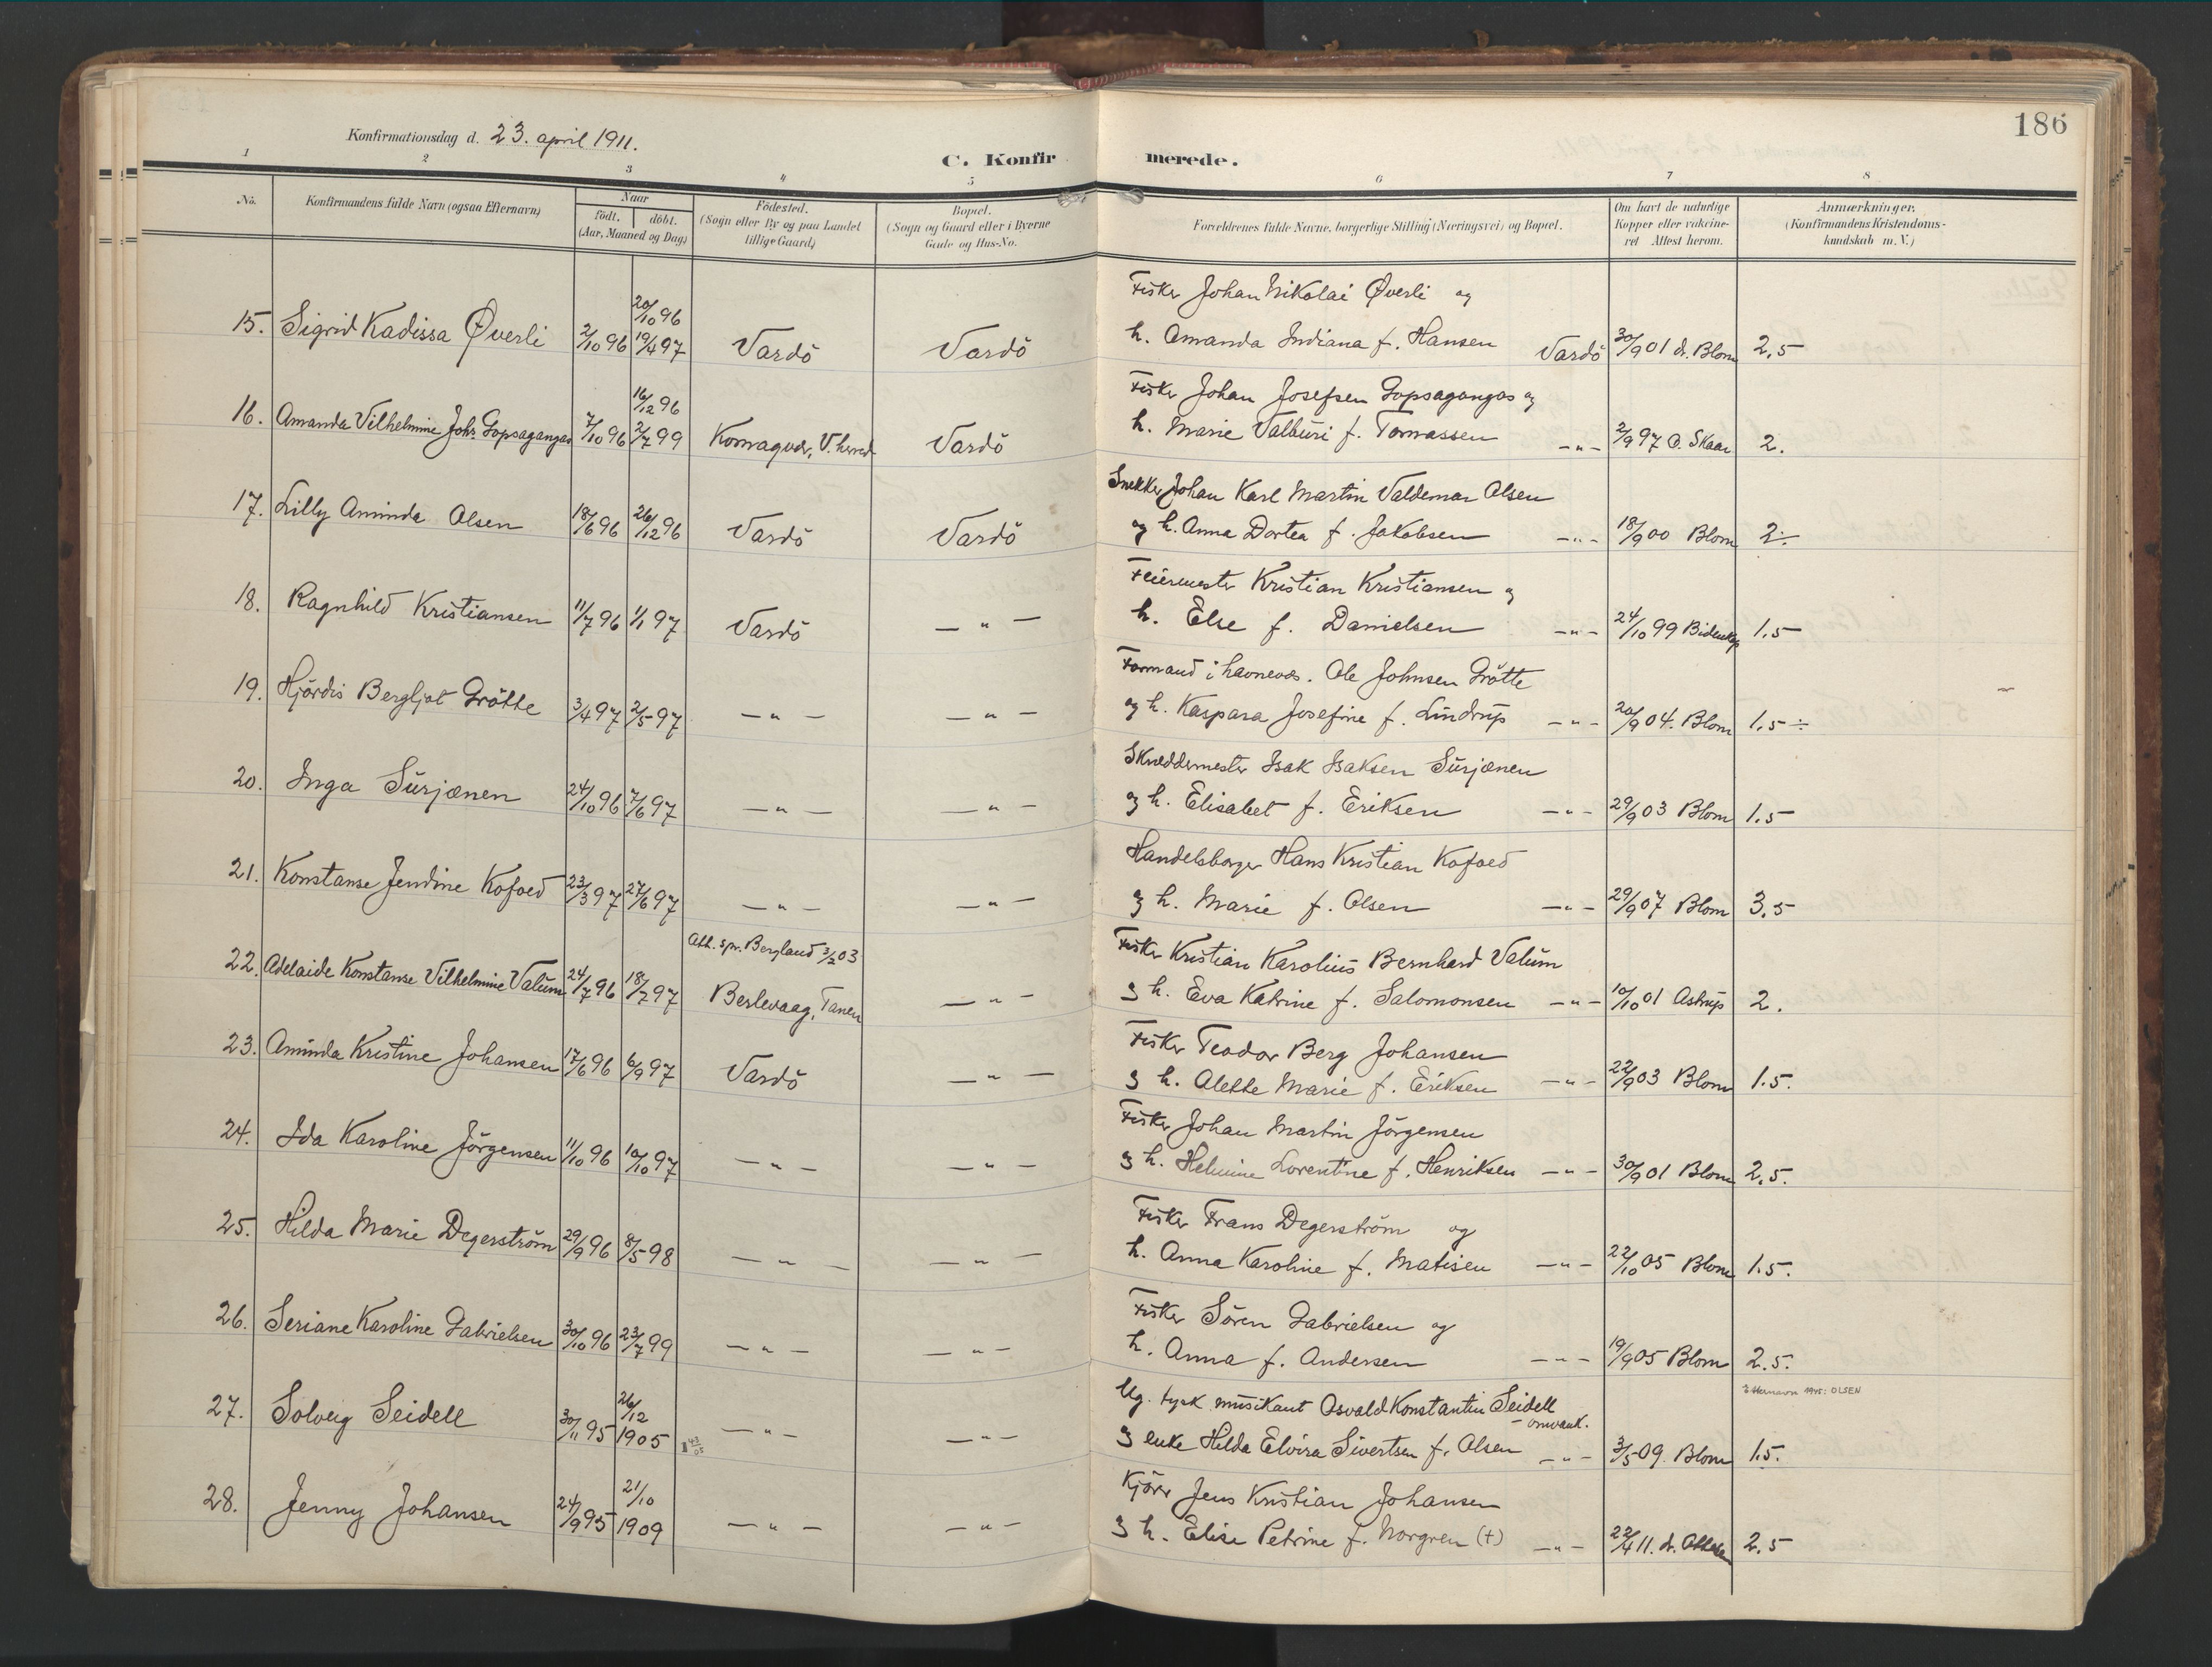 186
Konfirmationsdag d. 23. april 1911.
C. Konfirmerede.
1 2 3 4 5 6 7 8
No.
Konfirmandens fulde Navn (ogsaa Efternavn)
Naar
födt. döbt.
(Aar, Maaned og Dag)
Födested.
(Sogn eller By og paa Landet
tillige Gaard)
Bopæl.
(Sogn og Gaard eller i Byerne
Gade og Hus-No.
Forældrenes fulde Navne, borgerlige Stilling (Næringsvei) og Bopæl.
Om havt de naturlige
Kopper eller vakcine-
ret Attest herom.
Anmærkninger.
(Konfirmandens Kristendoms-
kundskab m. V.)
20/10 96
Fisker Johan Nikolai Øverli og
15. Sigrid Kadissa Øverli 2/10 96 19/4 97 Vardö Vardö h. Amanda Indiana f. Hansen Vardö 30/9 01 dr. Blom 2,5
16/12 96
Fisker Johan Josefsen Gopsagangas og
16. Amanda Vilhelmine Johs Gopsagangas 7/10 96 2/7 99 Komagvær, V. herred Vardö h. Marie Valburi f. Tomassen -"- 2/9 97 O. Skaar 2.
Snekker Johan Karl Martin Valdemar Olsen
17. Lilly Aminda Olsen 18/6 96 26/12 96 Vardö Vardö og h. Anna Dortea f. Jakobsen -"- 18/9 00 Blom 2÷
Feiermester Kristian Kristiansen og
18. Ragnhild Kristiansen 11/7 96 1/1 97 Vardö -"- h. Else f. Danielsen -"- 24/10 99 Bidenkap 1.5
Formand i havnevæs. Ole Johnsen Grötte
19. Hjördis Bergljot Grötte 3/4 97 2/5 97 -"- -"- og h. Kaspara Josefine f. Lindrup -"- 20/9 04. Blom 1.5÷
Skræddermester Isak Isaksen Surjænen
20. Inga Surjænen 24/10 96 7/6 97 -"- -"- og h. Elisabet f. Eriksen -"- 29/9 03 Blom 1.5
Handelsborger Hans Kristian Kofoed
21. Konstanse Jendine Kofoed 23/3 97 27/6 97 -"- -"- og h. Marie f. Olsen -"- 29/9 07 Blom 3.5
Att. spr. Bergland 3/2 03
Fisker Kristian Karolius Bernhard Valum
22. Adelaide Konstanse Vilhelmine Valum 24/7 96 18/7 97 Berlevaag, Tanen -"- og h. Eva Katrine f. Salomonsen -"- 10/10 01 Astrup 2.
Fisker Teodor Berg Johansen
23. Aminda Kristine Johansen 17/6 96 6/9 97 Vardö -"- og h. Alette Marie f. Eriksen -"- 22/9 03 Blom 1.5.
Fisker Johan Martin Jörgensen
24. Ida Karoline Jörgensen 11/10 96 10/10 97 -"- -"- og h. Helmine Lorentine f. Henriksen -"- 30/9 01 Blom 2.5.
Fisker Frans Degerström og
25. Hilda Marie Degerström 29/9 96 8/5 98 -"- -"- h. Anna Karoline f. Matisen -"- 22/10 05 Blom 1.5.
Fisker Sören Gabrielsen og
26. Seriane Karoline Gabrielsen 30/10 96 23/7 99 -"- -"- h. Anna f. Andersen -"- 19/9 05 Blom 2.5.
Etternavn 1945: OLSEN
Ug. tysk musikant Osvald Konstantin Seidell
- omvank.
27. Solveig Seidell 30/11 95 26/12 1905 -"- -"- og enke Hilda Elvira Sivertsen f. Olsen -"- 3/5 09. Blom 1.5.
Kjörer Jens Kristian Johansen
28. Jenny Johansen 24/9 95 21/10 1909 -"- -"- og h. Elise Petrine f. Norgren (+) -"- 22/4 11. dr. 2.5